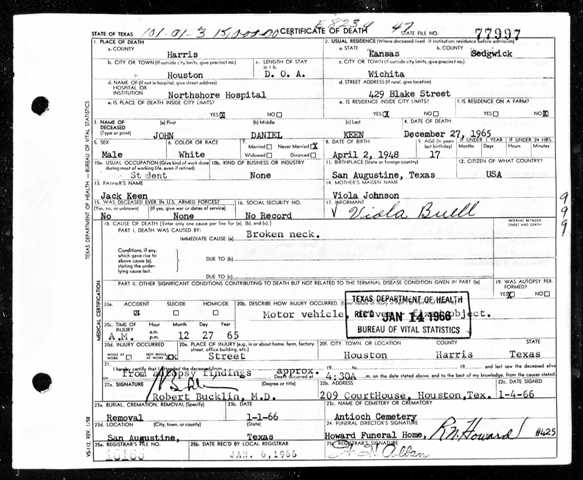 STATE OF TEXAS CERTIFICATE OF DEATH STATE FILE NO. 77997
1. PLACE OF DEATH
2. USUAL RESIDENCE (Where deceased lived. If institution: residence before admission)
a. COUNTY Harris a. STATE Kansas b. COUNTY Sedgwick
b. CITY OR TOWN (If outside city limits, give precinct no.) Houston c. LENGTH OF STAY D. O. A. c. CITY OR TOWN (If outside city limits, give precinct no.) Wichita
d. NAME OF (If not in hospital, give street address) HOSPITAL OR INSTITUTION Northshore Hospital d. STREET ADDRESS (If rural, give location) 429 Blake Street
e. IS PLACE OF DEATH INSIDE CITY LIMITS? YES X NO e. IS RESIDENCE INSIDE CITY LIMITS? YES X NO f. IS RESIDENCE ON A FARM? YES NO X
3. NAME OF DECEASED (Type or print) (a) First JOHN (b) Middle DANIEL (c) Last KEEN 4. DATE OF DEATH December 27, 1965
5. SEX Male 6. COLOR OR RACE White 7. Married Never Married X Widowed Divorced 8. DATE OF BIRTH April 2, 1948 9. AGE 17 IF UNDER 1 YEAR Months Days IF UNDER 24 HRS. Hours Min.
10a. USUAL OCCUPATION (Give kind of work done during most of working life, even if retired) Student 10b. KIND OF BUSINESS OR INDUSTRY None 11. BIRTHPLACE (State or foreign country) San Augustine, Texas 12. CITIZEN OF WHAT COUNTRY? USA
13. FATHER'S NAME Jack Keen 14. MOTHER'S MAIDEN NAME Viola Johnson
15. WAS DECEASED EVER IN U.S. ARMED FORCES? (Yes, no, or unknown) No (If yes, give war or dates of service) None 16. SOCIAL SECURITY NO. No Record 17. INFORMANT Viola Buell
18. CAUSE OF DEATH [Enter only one cause per line for (a), (b), and (c).] INTERVAL BETWEEN
PART I. DEATH WAS CAUSED BY: IMMEDIATE CAUSE (a) Broken neck.
Conditions, if any, which gave rise to above cause (a), stating the underlying cause last. DUE TO (b)
DUE TO (c)
PART II. OTHER SIGNIFICANT CONDITIONS CONTRIBUTING TO DEATH BUT NOT RELATED TO THE TERMINAL DISEASE CONDITION GIVEN IN PART I (a) 19. WAS AUTOPSY PERFORMED? YES X NO
20a. ACCIDENT X SUICIDE HOMICIDE 20b. DESCRIBE HOW INJURY OCCURRED. Motor vehicle, object.
TEXAS DEPARTMENT OF HEALTH
REC'D JAN 14 1966
BUREAU OF VITAL STATISTICS
20c. TIME OF INJURY Hour A.M. Month 12 Day 27 Year 65
20d. INJURY OCCURRED WHILE AT WORK NOT WHILE AT WORK X 20e. PLACE OF INJURY Street 20f. CITY, TOWN, OR LOCATION Houston COUNTY Harris STATE Texas
21. from autopsy findings approx. 4:30A m. on the date stated above, and to the best of my knowledge, from the causes stated.
22a. SIGNATURE (Degree or title) Robert Bucklin, M.D. 22b. ADDRESS 209 CourtHouse, Houston, Tex. 22c. DATE SIGNED 1-4-66
23a. BURIAL, CREMATION, REMOVAL (Specify) Removal 23b. DATE 1-1-66 23c. NAME OF CEMETERY OR CREMATORY Antioch Cemetery
23d. LOCATION (City, town, or county) (State) San Augustine, Texas 24. FUNERAL DIRECTOR'S SIGNATURE Howard Funeral Home, R.N. Howard #425
25a. REGISTRAR'S FILE NO. 25b. DATE REC'D BY LOCAL REGISTRAR JAN. 6, 1966 25c. REGISTRAR'S SIGNATURE
TEXAS DEPARTMENT OF HEALTH — BUREAU OF VITAL STATISTICS
MEDICAL CERTIFICATION
9
9
9